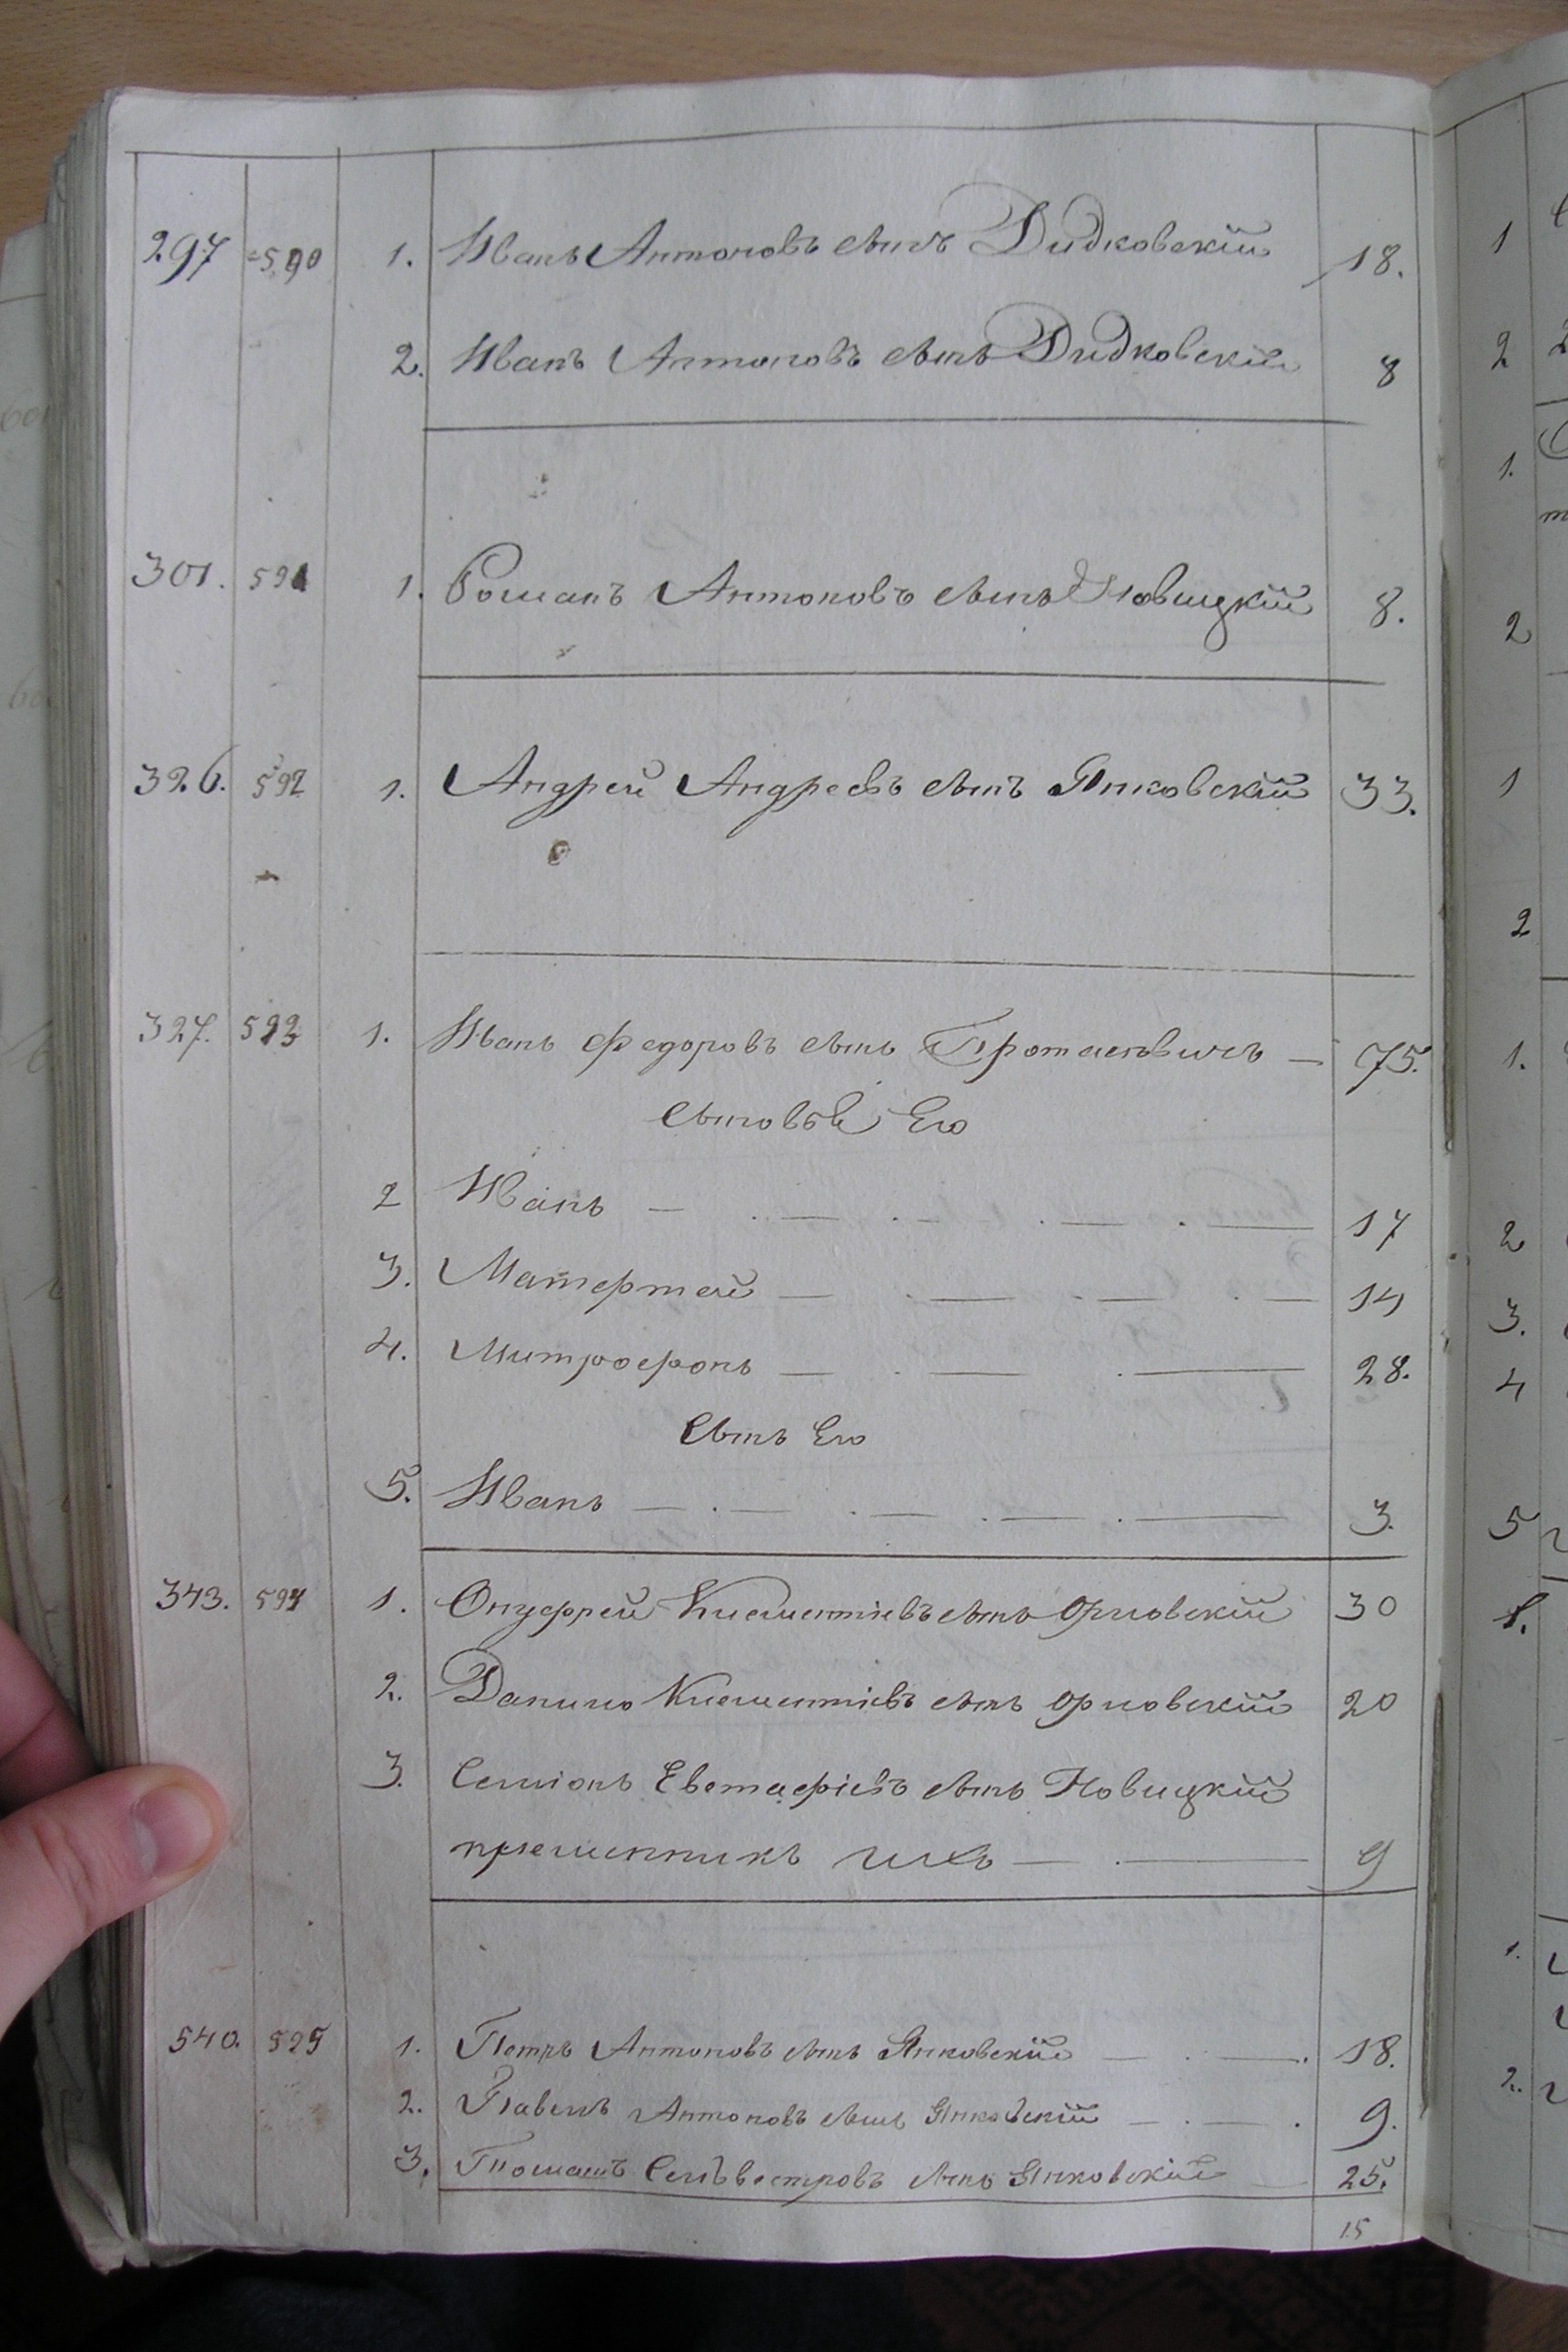 297 590 1. Иванъ Антоновъ сынъ Дидковскій 18.
2. Иванъ Антоновъ сынъ Дидковскій 8
301. 591 1. Романъ Антоновъ сынъ Новицкій 8.
326. 592 1. Андрей Андреевъ сынъ Янковскій 33.
327. 593 1. Иванъ Федоровъ сынъ Протасевичъ — 75.
Сыновья Его
2 Иванъ — . — . — . — . — 17
3. Матефтей — . — . — . — 14
4. Митрофонъ — . — . — 28.
Сынъ Его
5. Иванъ — . — . — . — . — 3.
343. 594 1. Онуфрей Клементіевъ сынъ Орловскій 30
2. Данило Клементіевъ сынъ Орловскій 20
3. Семіонъ Евстафіевъ сынъ Новицкій
племянникъ ихъ — . — 9
540. 595 1. Петръ Антоновъ сынъ Янковскій — . — . 18.
2. Павелъ Антоновъ сынъ Янковскій — . — . 9.
3. Томашъ Сельвестровъ сынъ Янковскій — 25.
15
1
2
1.
2
1
2
1.
2
3.
4
5
1.
1.
2.